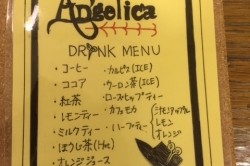 Angelica
DRINK MENU
・コーヒー ・カルピス(ICE)
・ココア ・ウーロン茶(ICE)
・紅茶 ・ローズヒップティー
・レモンティー ・カフェモカ
・ミルクティー ・ハーブティー
レモン
オレンジ
・ほうじ茶(Hot)
・オレンジジュース